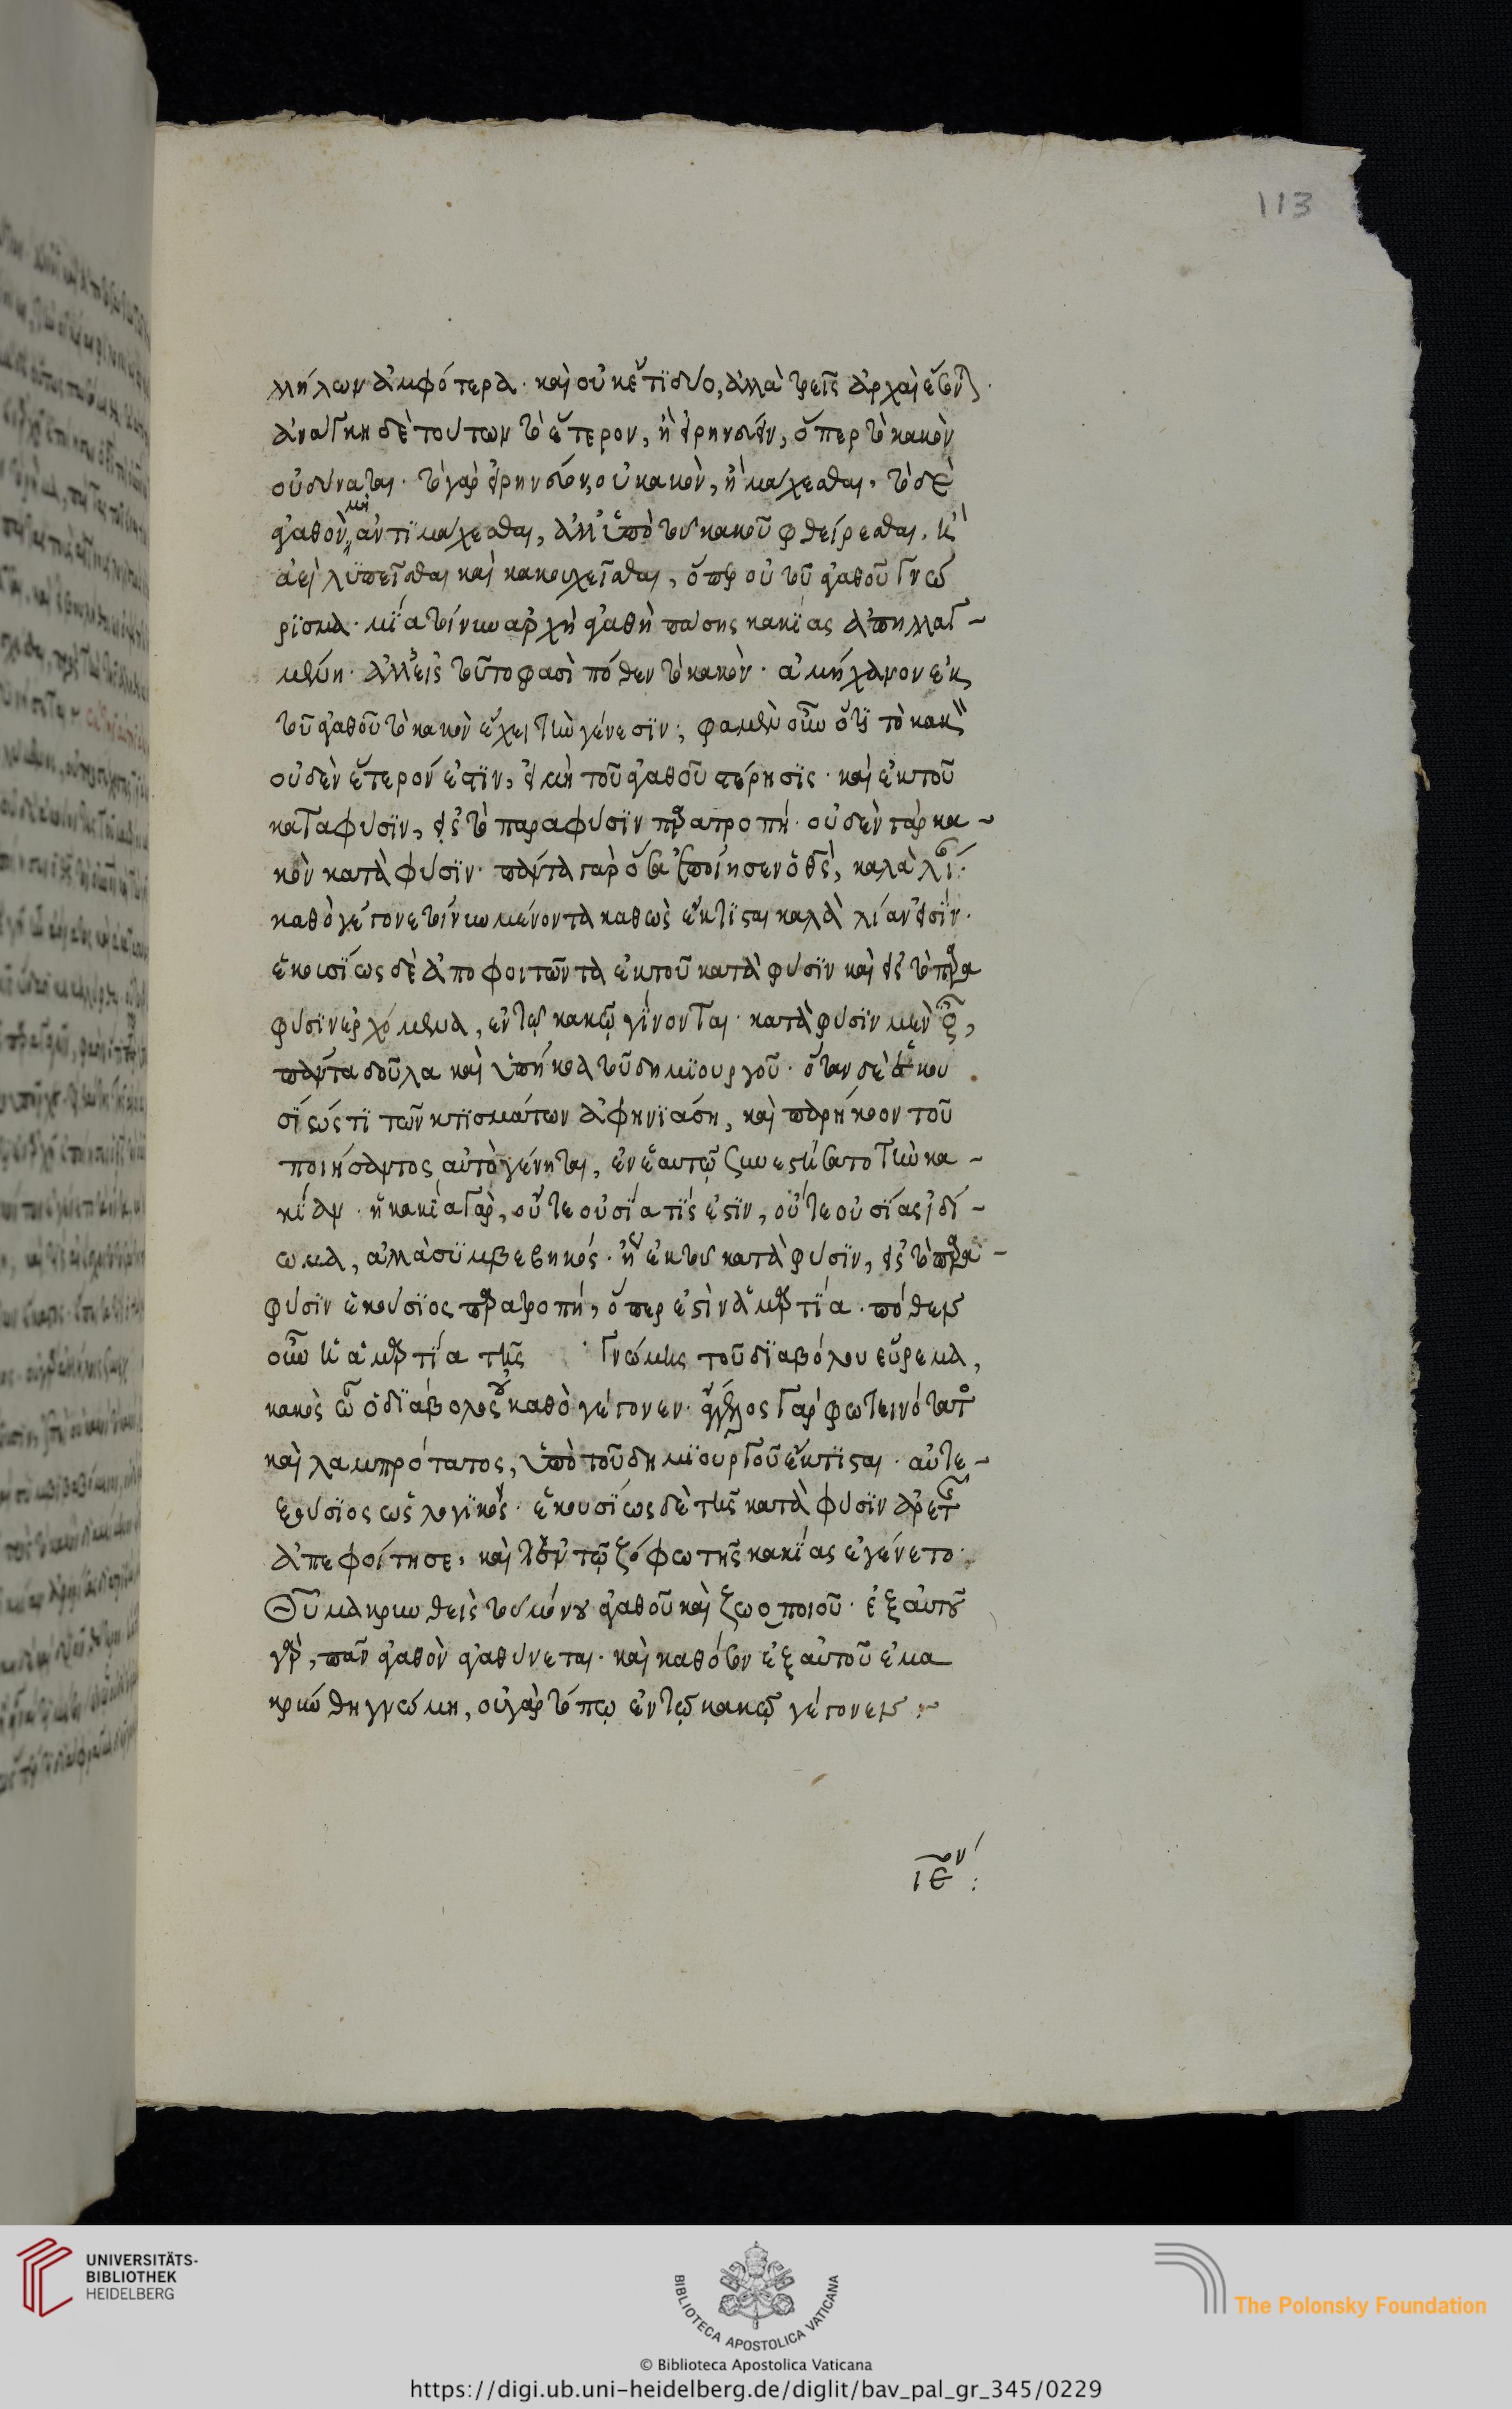 113
λλήλων ἀμφότερα· καὶ οὐκέτι δύο, ἀλλὰ τρεῖς ἀρχαὶ ἔσονται·
ἀνάγκη δὲ τούτων τὸ ἕτερον, ἢ εἰρηνεύειν, ὅπερ τὸ κακὸν
οὐ δύναται· τὸ γὰρ εἰρηνεῦον, οὐ κακὸν, ἢ μάχεσθαι, τὸ δὲ
ἀγαθὸν, μὴ ἀντιμάχεσθαι, ἀλλ' ὑπὸ τοῦ κακοῦ φθείρεσθαι, καὶ
ἀεὶ λυπεῖσθαι καὶ κακουχεῖσθαι, ὅπερ οὐ τοῦ ἀγαθοῦ γνώ
ρισμα· μία τοίνυν ἀρχὴ ἀγαθὴ πάσης κακίας ἀπηλλαγ-
μένη· ἀλλ' εἰ τοῦτο φασὶ πόθεν τὸ κακὸν· ἀμήχανον ἐκ
τοῦ ἀγαθοῦ τὸ κακὸν ἔχειν τὴν γένεσιν; φαμὲν οὖν ὅτι τὸ κακὸν
οὐδὲν ἕτερόν ἐστιν, εἰ μὴ τοῦ ἀγαθοῦ στέρησις· καὶ ἐκ τοῦ
κατὰ φύσιν, εἰς τὸ παρὰ φύσιν παρατροπή· οὐδὲν γὰρ κα-
κὸν κατὰ φύσιν· πάντα γὰρ ὅσα ἐποίησεν ὁ θεὸς, καλὰ λίαν·
καθὸ γέγονε τοίνυν μένοντα καθὼς ἔκτισται καλὰ λίαν εἰσίν·
ἑκουσίως δὲ ἀποφοιτῶντα ἐκ τοῦ κατὰ φύσιν καὶ εἰς τὸ παρὰ
φύσιν ἐρχόμενα, ἐν τῷ κακῷ γίνονται· κατὰ φύσιν μὲν οὖν,
πάντα δοῦλα καὶ ὑπήκοα τοῦ δημιουργοῦ· ὅταν δὲ ἑκου
σίως τι τῶν κτισμάτων ἀφηνιάσῃ, καὶ παρήκοον τοῦ
ποιήσαντος αὐτὸ γένηται, ἐν ἑαυτῷ συνεστήσατο τὴν κα-
κίαν· ἡ κακία γὰρ, οὔτε οὐσία τίς ἐστιν, οὔτε οὐσίας ἰδί-
ωμα, ἀλλὰ συμβεβηκός· ἡ ἐκ τοῦ κατὰ φύσιν, εἰς τὸ παρὰ-
φύσιν ἑκούσιος παρατροπή, ὅπερ ἐστὶν ἁμαρτία· πόθεν
οὖν ἡ ἁμαρτία τῆς γνώμης τοῦ διαβόλου εὕρεμα,
κακὸς οὖν ὁ διάβολος οὐ καθὸ γέγονεν· ἄγγελος γὰρ φωτεινότατος
καὶ λαμπρότατος, ὑπὸ τοῦ δημιουργοῦ ἔκτισται· αὐτε-
ξούσιος ὡς λογικός· ἑκουσίως δὲ τῆς κατὰ φύσιν ἀρετῆς
ἀπεφοίτησε, καὶ ἐν τῷ ζόφῳ τῆς κακίας ἐγένετο·
Θεοῦ μακρυνθεὶς τοῦ μόνου ἀγαθοῦ καὶ ζωοποιοῦ· ἐξ αὐτοῦ
γὰρ, πᾶν ἀγαθὸν ἀγαθύνεται· καὶ καθόσον ἐξ αὐτοῦ ἐμα
κρύνθη γνώμη, οὐ γὰρ τόπῳ ἐν τῷ κακῷ γέγονεν :~
ιε ν :
UNIVERSITÄTS-
BIBLIOTHEK
HEIDELBERG
BIBLIOTECA APOSTOLICA VATICANA
The Polonsky Foundation
© Biblioteca Apostolica Vaticana
https://digi.ub.uni-heidelberg.de/diglit/bav_pal_gr_345/0229